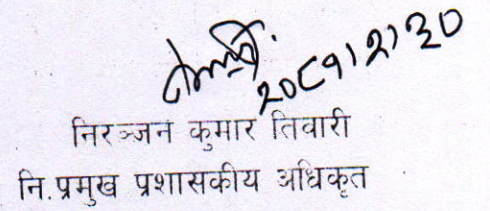 २०८१।२।३०
निरञ्जन कुमार तिवारी
नि.प्रमुख प्रशासकीय अधिकृत